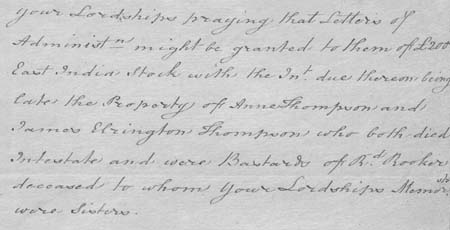 your Lordships praying that Letters of
Administn might be granted to them of £200
East India Stock with the Int. due thereon being
late the Property of Anne Thompson and
James Elrington Thompson who both died
Intestate and were Bastards of Rd. Rooker
deceased to whom Your Lordships Memorsts
were Sisters.